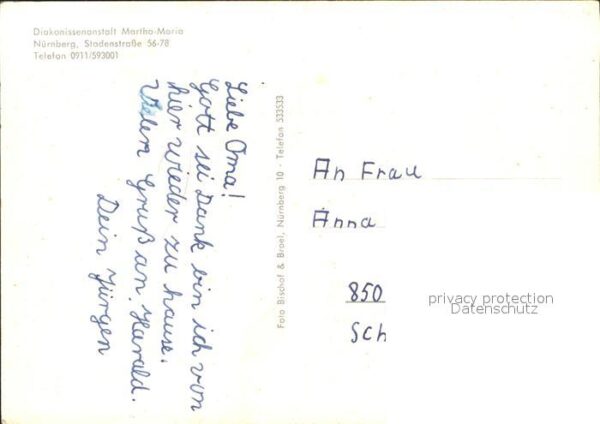 Diakonissenanstalt Martha-Maria
Nürnberg, Stadenstraße 56-78
Telefon 0911/593001
Liebe Oma!
Gott sei Dank bin ich von
hier wieder zu hause.
Vielen Gruß an Harald.
Dein Jürgen
Foto Bischof & Broel, Nürnberg 10 - Telefon 533533
An Frau
Anna
850
Sch
privacy protection
Datenschutz